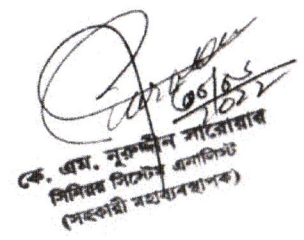 ২০২২
কে. এম. নূরুদ্দীন সারোয়ার
সিনিয়র সিস্টেম এনালিস্ট
(সহকারী মহাব্যবস্থাপক)